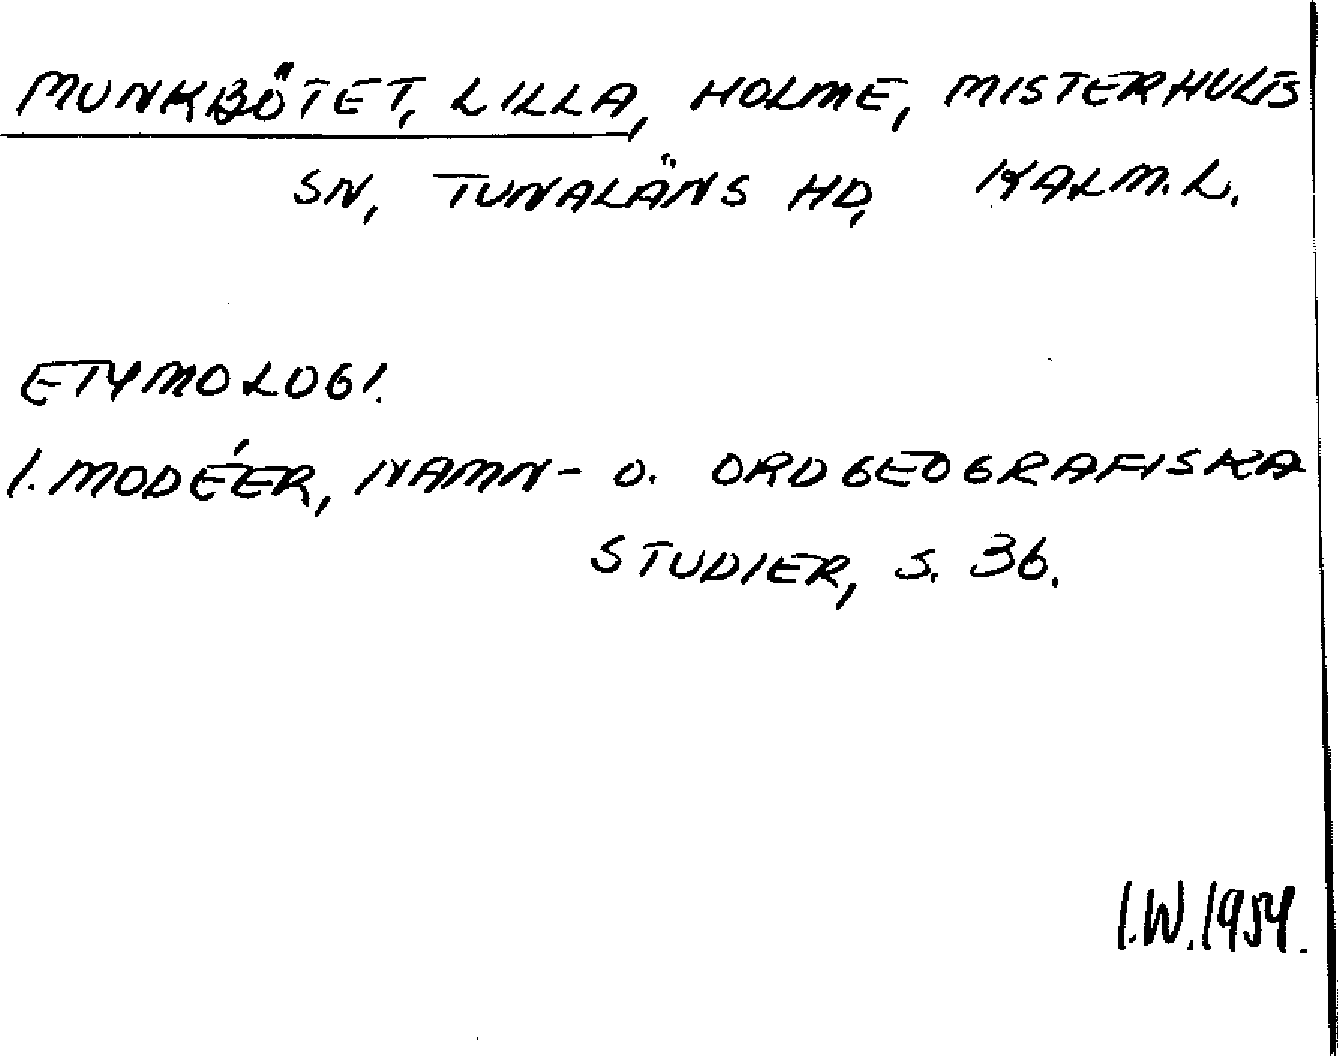 MUNKBÖTET, LILLA, HOLME, MISTERHULTS
SN, TUNALÄNS HD, KALM.L.
ETYMOLOGI.
I. MODÉER, NAMN- O. ORDGEOGRAFISKA
STUDIER, S. 36.
I.W. 1954.